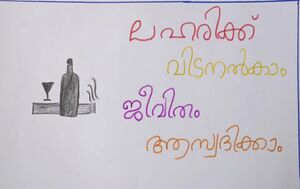 ലഹരിക്ക്
വിടനൽകാം
ജീവിതം
ആസ്വദിക്കാം